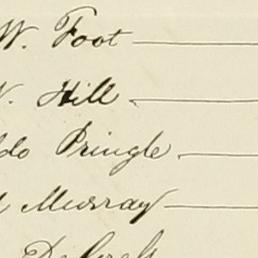 W. Foot
Hill
do Pringle
Murray